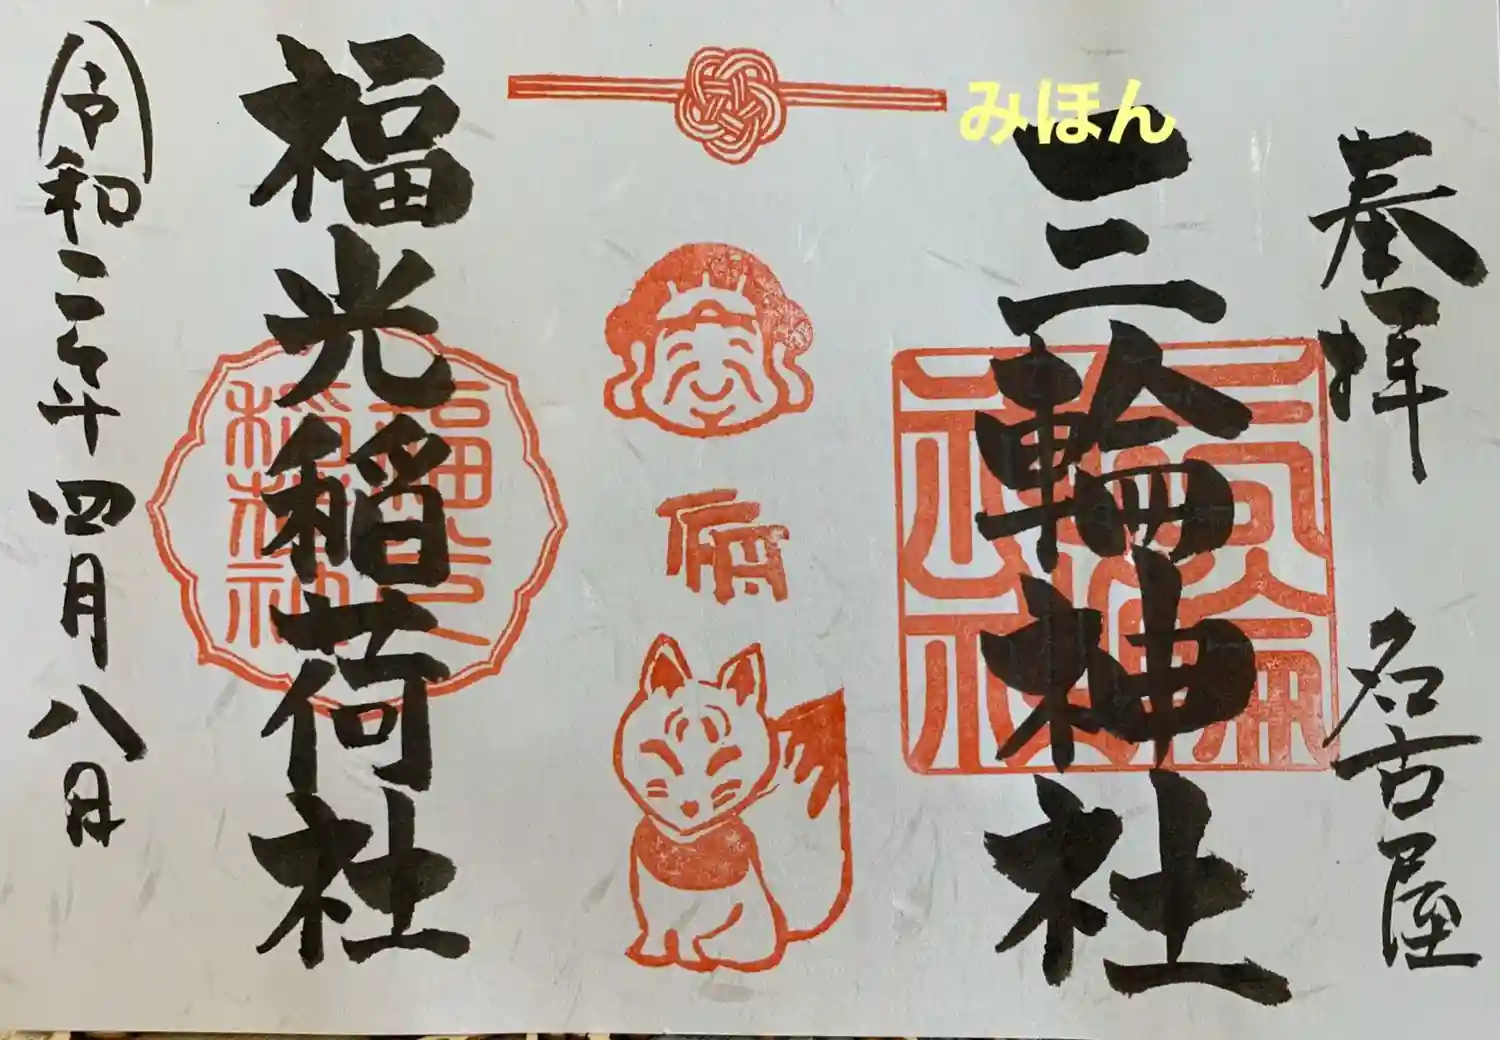 奉拝
名古屋
みほん
三輪神社
三輪神社
福光稲荷社
福光
稲荷社
令和二年四月八日